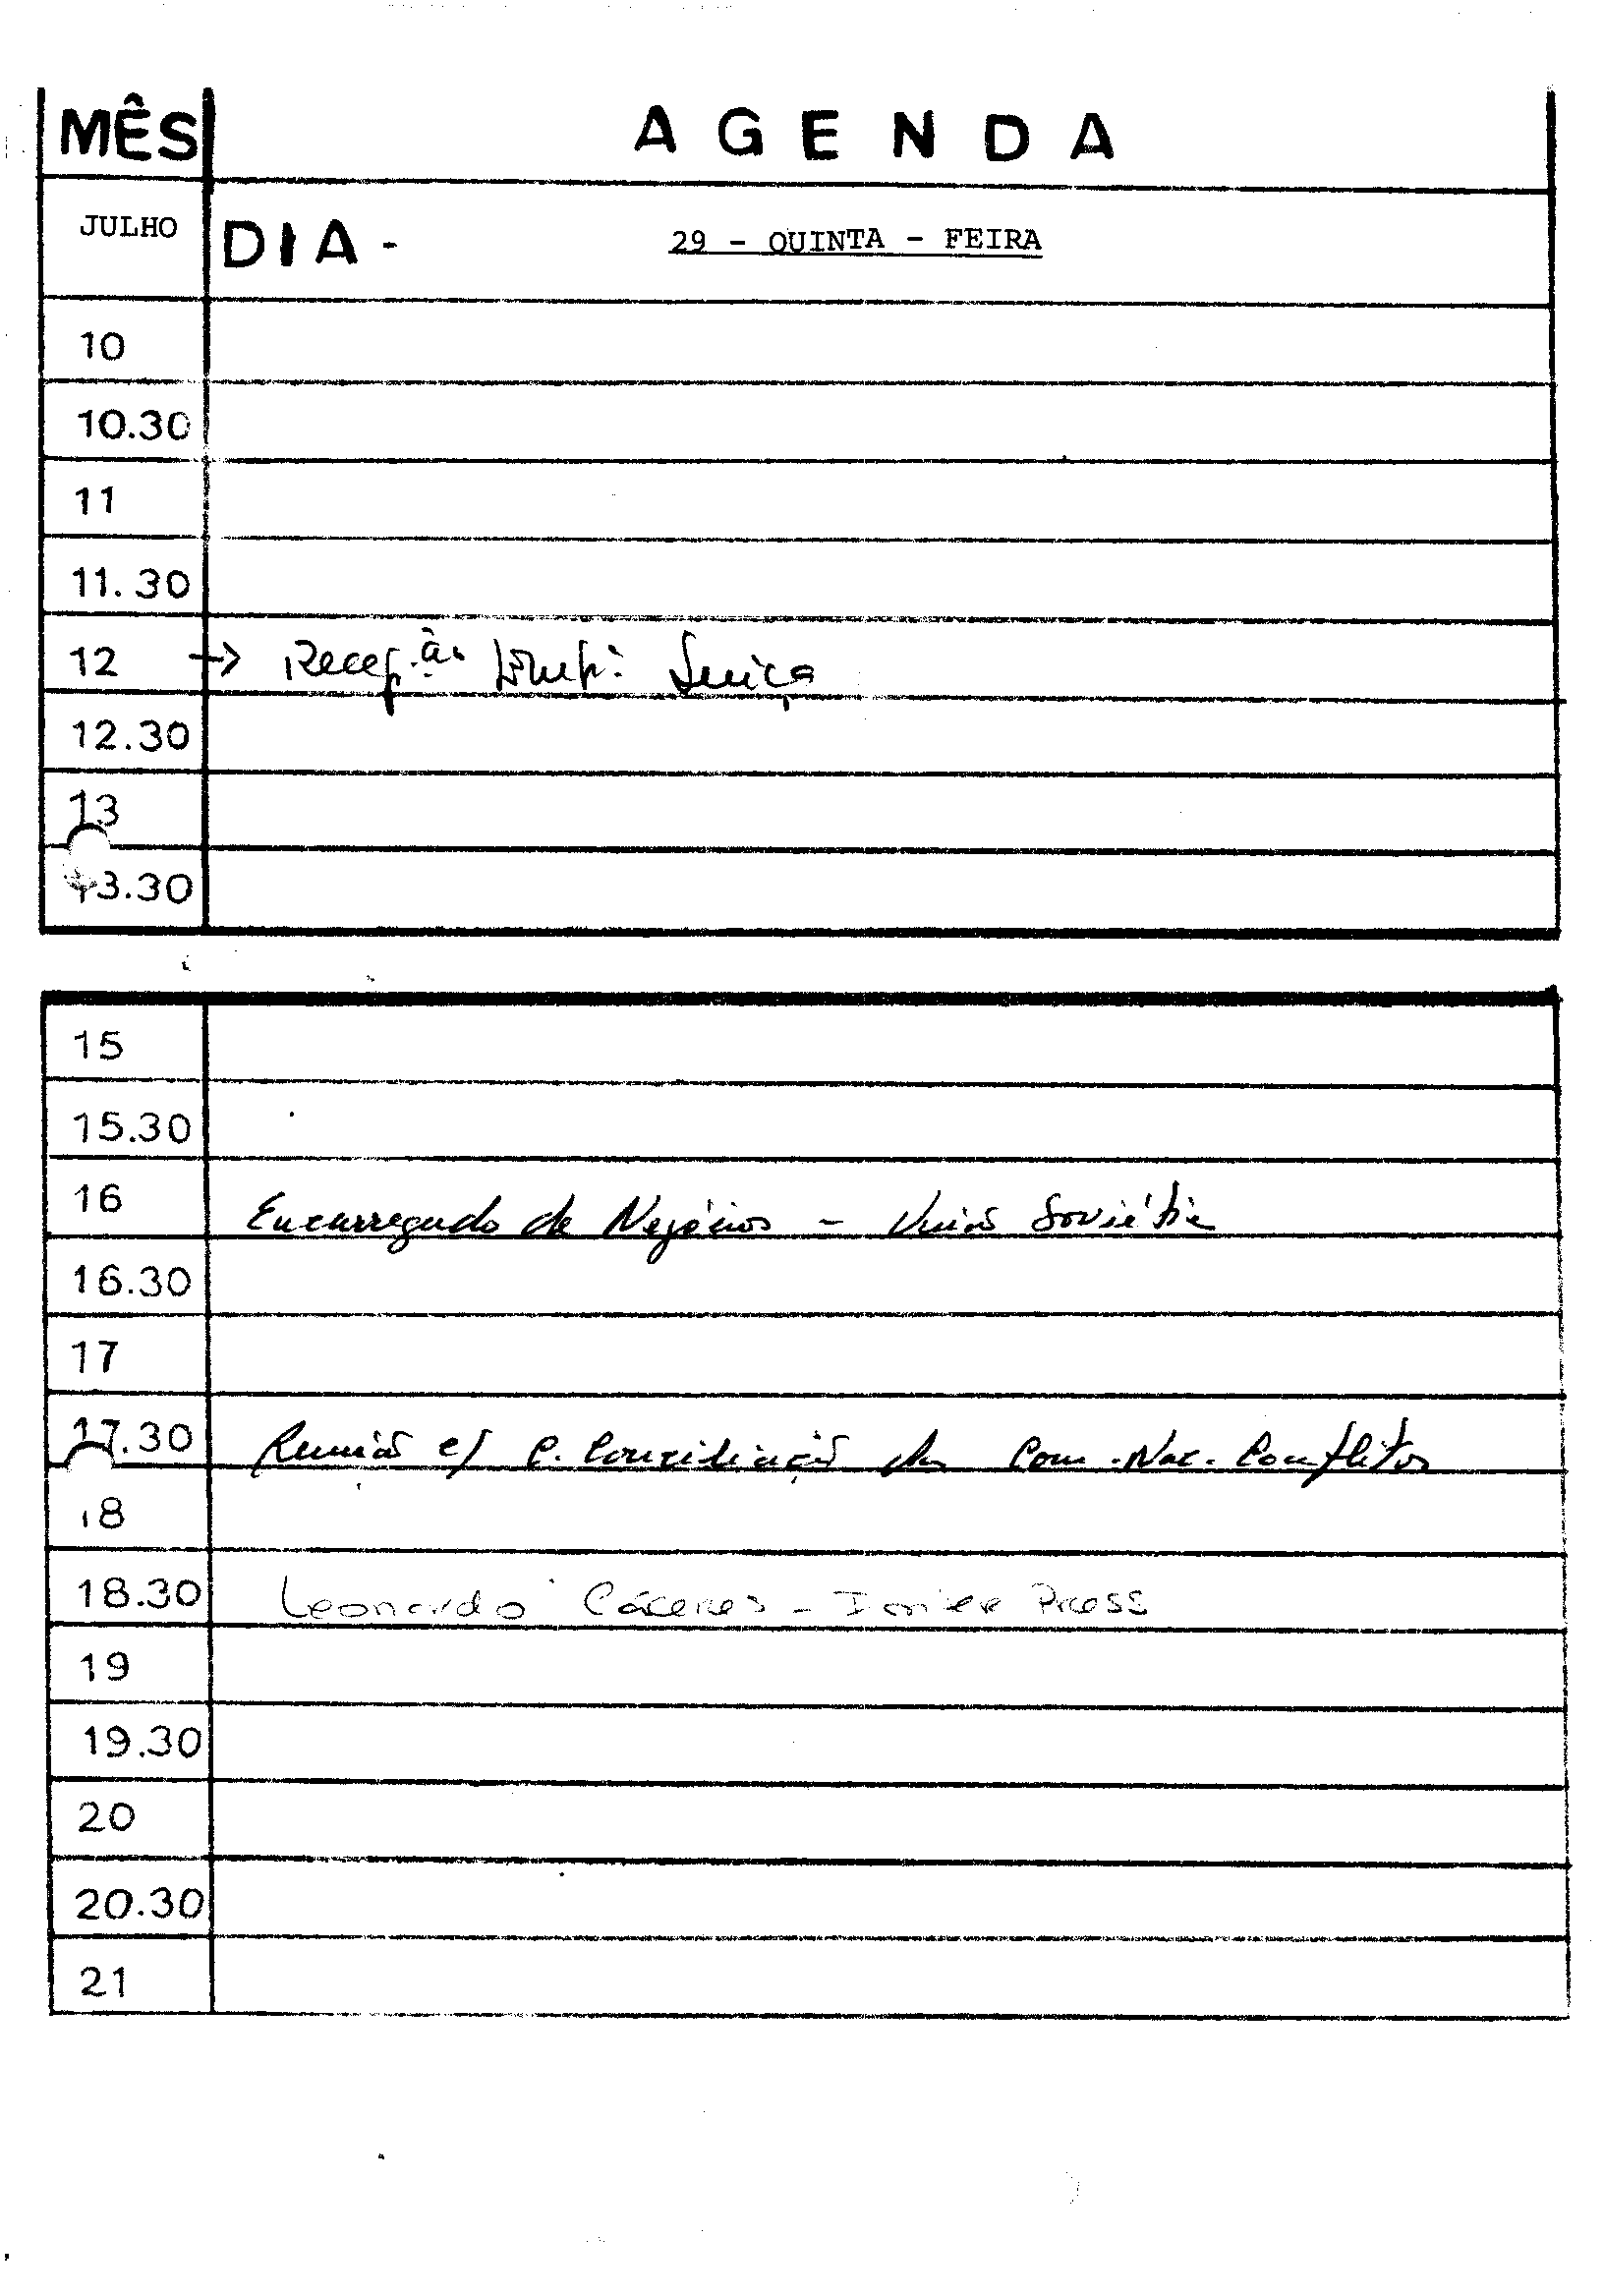 MÊS AGENDA
JULHO DIA - 29 - QUINTA - FEIRA
10
10.30
11
11.30
12 → Recepção Suiça
12.30
13
13.30
15
15.30
16 Encarregado de Negócios - União Soviétic
16.30
17
17.30 Reunião c/ C. Conciliação da Com. Nac. Conflitos
18
18.30 Leonardo Cáceres - Inter Press
19
19.30
20
20.30
21